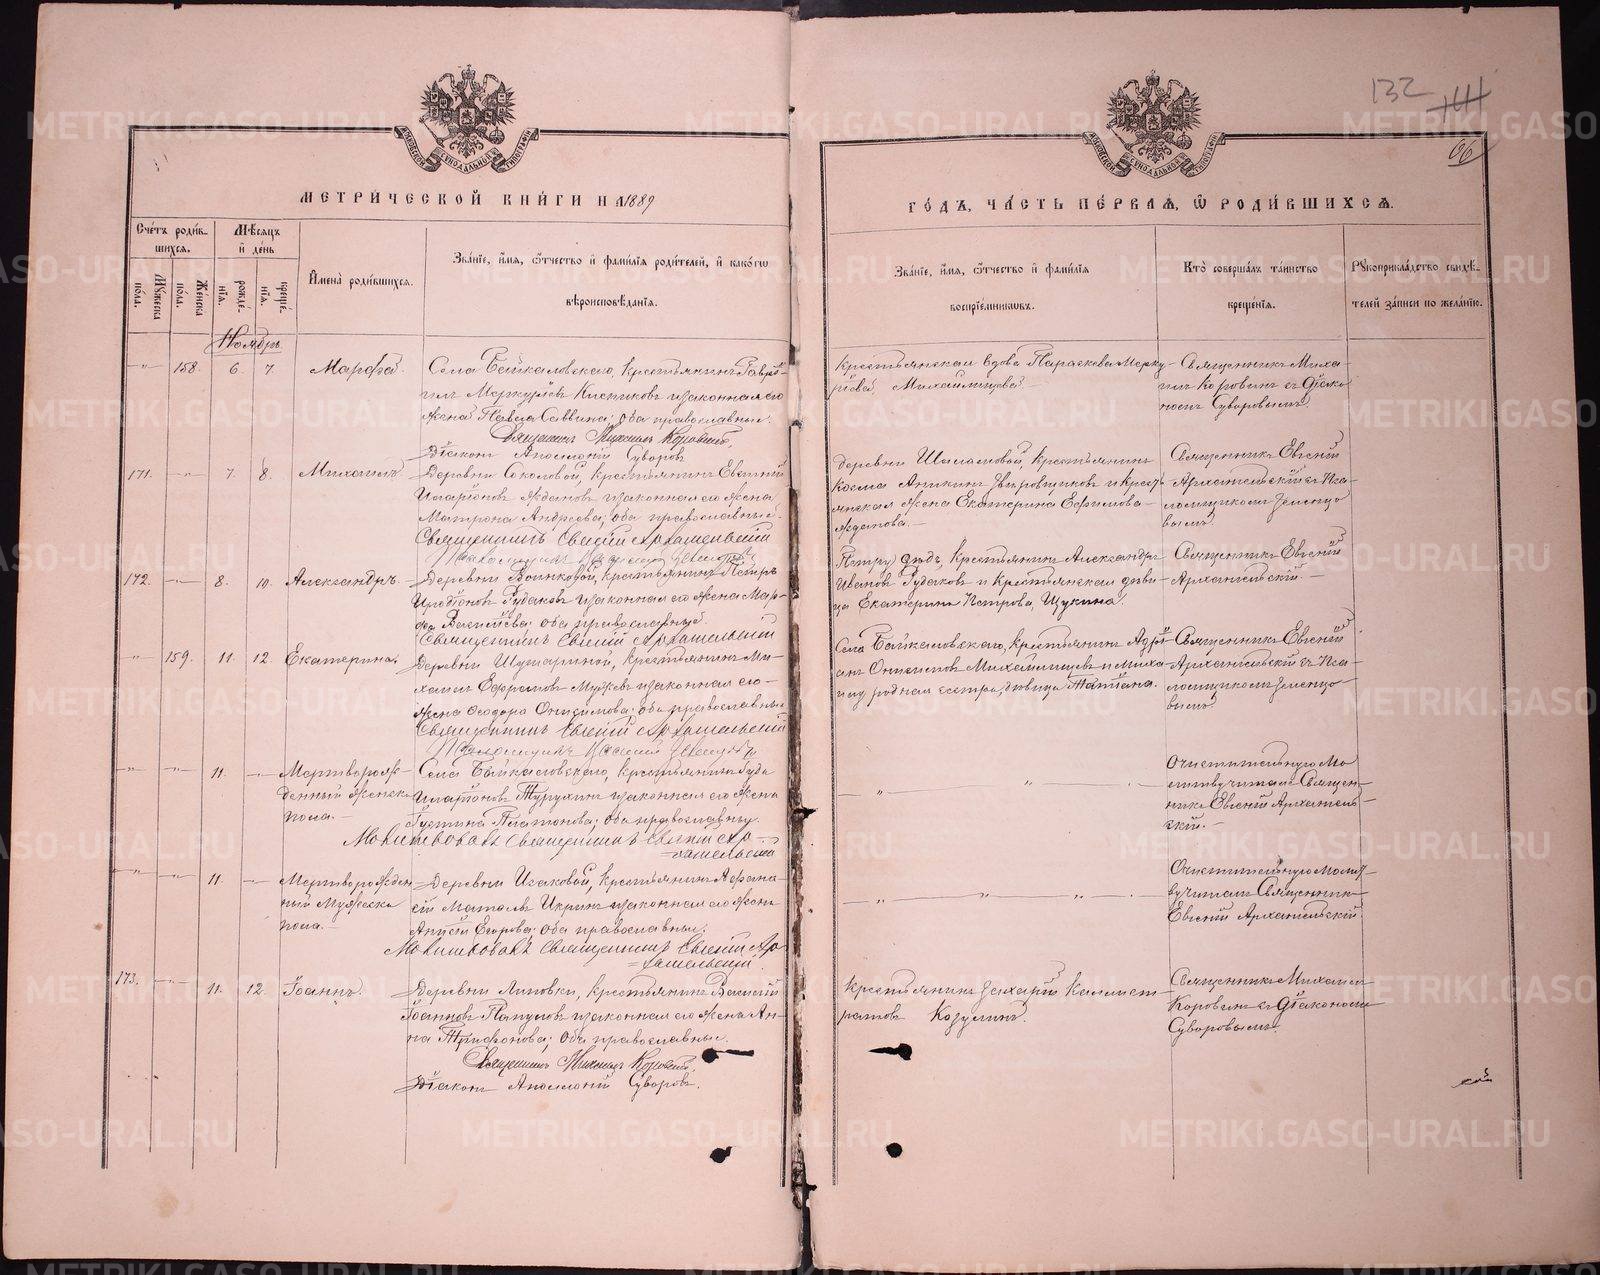 132
66
МОСКОВСКОЙ СѴНОДАЛЬНОЙ ТИПОГРАФІИ
МОСКОВСКОЙ СѴНОДАЛЬНОЙ ТИПОГРАФІИ
МЕТРИ́ЧЕСКОЙ КНИ́ГИ НА 1889
ГО́ДЪ, ЧА́СТЬ ПЕ́РВАѦ, Ѡ РОДИ́ВШИХСѦ.
Сче́тъ роди́в-
шихсѧ.
Мѣ́сѧцъ
и҆ де́нь
Му́жеска
по́ла.
Же́нска
по́ла.
рожде́-
нїѧ.
креще́-
нїѧ.
И҆мена̀ роди́вшихсѧ.
Зва́нїе, и҆́мѧ, ѻ҆́тчество и҆ фами́лїѧ роди́телей, и҆ како́гѡ
вѣроисповѣ́данїѧ.
Зва́нїе, и҆́мѧ, ѻ҆́тчество и҆ фами́лїѧ
воспрїе́мниковъ.
Кто̀ соверша́лъ та́инство
креще́нїѧ.
Рꙋкоприкла́дство свидѣ́-
телей за́писи по жела́нїю.
Ноябрь
-"- 158. 6. 7. Марѳа.
Села Байкаловскаго, крестьянинъ Гаврі-
илъ Меркурьевъ и законная его
жена Павла Саввина; оба православные.
Священникъ Михаилъ Коровинъ,
Діаконъ Аполлоній Суворовъ
Крестьянская вдова Параскева Мерку-
рьева Михайлищева.
Священникъ Миха-
илъ Коровинъ съ Діако-
номъ Суворовымъ.
171. -"- 7. 8. Михаилъ
Деревни Соколовой, крестьянинъ Евгеній
Иларіоновъ Ждановъ и законная его жена
Матрона Андреева; оба православные.
Священникъ Евгеній Архангельскій
Деревни Шаламовой, крестьянинъ
Косма Аникинъ и крест-
янская жена Екатерина Ефимова
Жданова.
Священникъ Евгеній
Архангельскій съ Пса-
ломщикомъ Зеленцо-
вымъ.
172. -"- 8. 10. Александръ.
Деревни Воинковой, крестьянинъ Петръ
Иродіоновъ Рудаковъ и законная его жена Мар-
ѳа Василіева; оба православные.
Священникъ Евгеній Архангельскій
дядь, крестьянинъ Александръ
Ивановъ Рудаковъ и крестьянская дѣви-
ца Екатерина Петрова, Щукина.
Священникъ Евгеній
Архангельскій.
-"- 159. 11. 12. Екатерина.
Деревни Шушариной, крестьянинъ Ми-
хаилъ Ефремовъ и законная его
жена Ѳеодора Онисимова; оба православные
Священникъ Евгеній Архангельскій
Села Байкаловскаго, крестьянинъ Адрі-
анъ Онисимовъ Михайлищевъ и Миха-
илу родная сестра, дѣвица Татіана.
Священникъ Евгеній
Архангельскій съ Пса-
ломщикомъ Зеленцо-
вымъ
-"- -"- 11. - Мертворож-
денный женска
пола.
Села Байкаловскаго, крестьянинъ Іуда
Иларіоновъ Турухинъ и законная его жена
Іустина Платонова; оба православны.
Молитвовалъ Священникъ Евгеній Ар-
хангельскій
-"- -"- -
Очистительную Мо-
литву читалъ Священ-
никъ Евгеній Архангель-
скій.
-"- -"- 11. - Мертворожден
ный Мужеска
пола.
Деревни Исаковой, крестьянинъ Аѳана-
сій и законная его жена
Анисія Егорова; оба православные.
Молитвовалъ Священникъ Евгеній Ар-
хангельскій.
-"- -"- -"-
Очистительную Молит-
ву читалъ Священникъ
Евгеній Архангельскій.
173. -"- 11. 12. Іоаннъ.
Деревни Липовки, крестьянинъ Василій
Іоанновъ Папуловъ и законная его жена Ан-
на Трифонова; оба православные.
Священникъ Михаилъ Коровинъ,
Діаконъ Аполлоній Суворовъ.
Крестьянинъ Захарій Каллист-
ратовъ Козулинъ.
Священникъ Михаилъ
Коровинъ съ Діакономъ
Суворовымъ.
METRIKI.GASO-URAL.RU